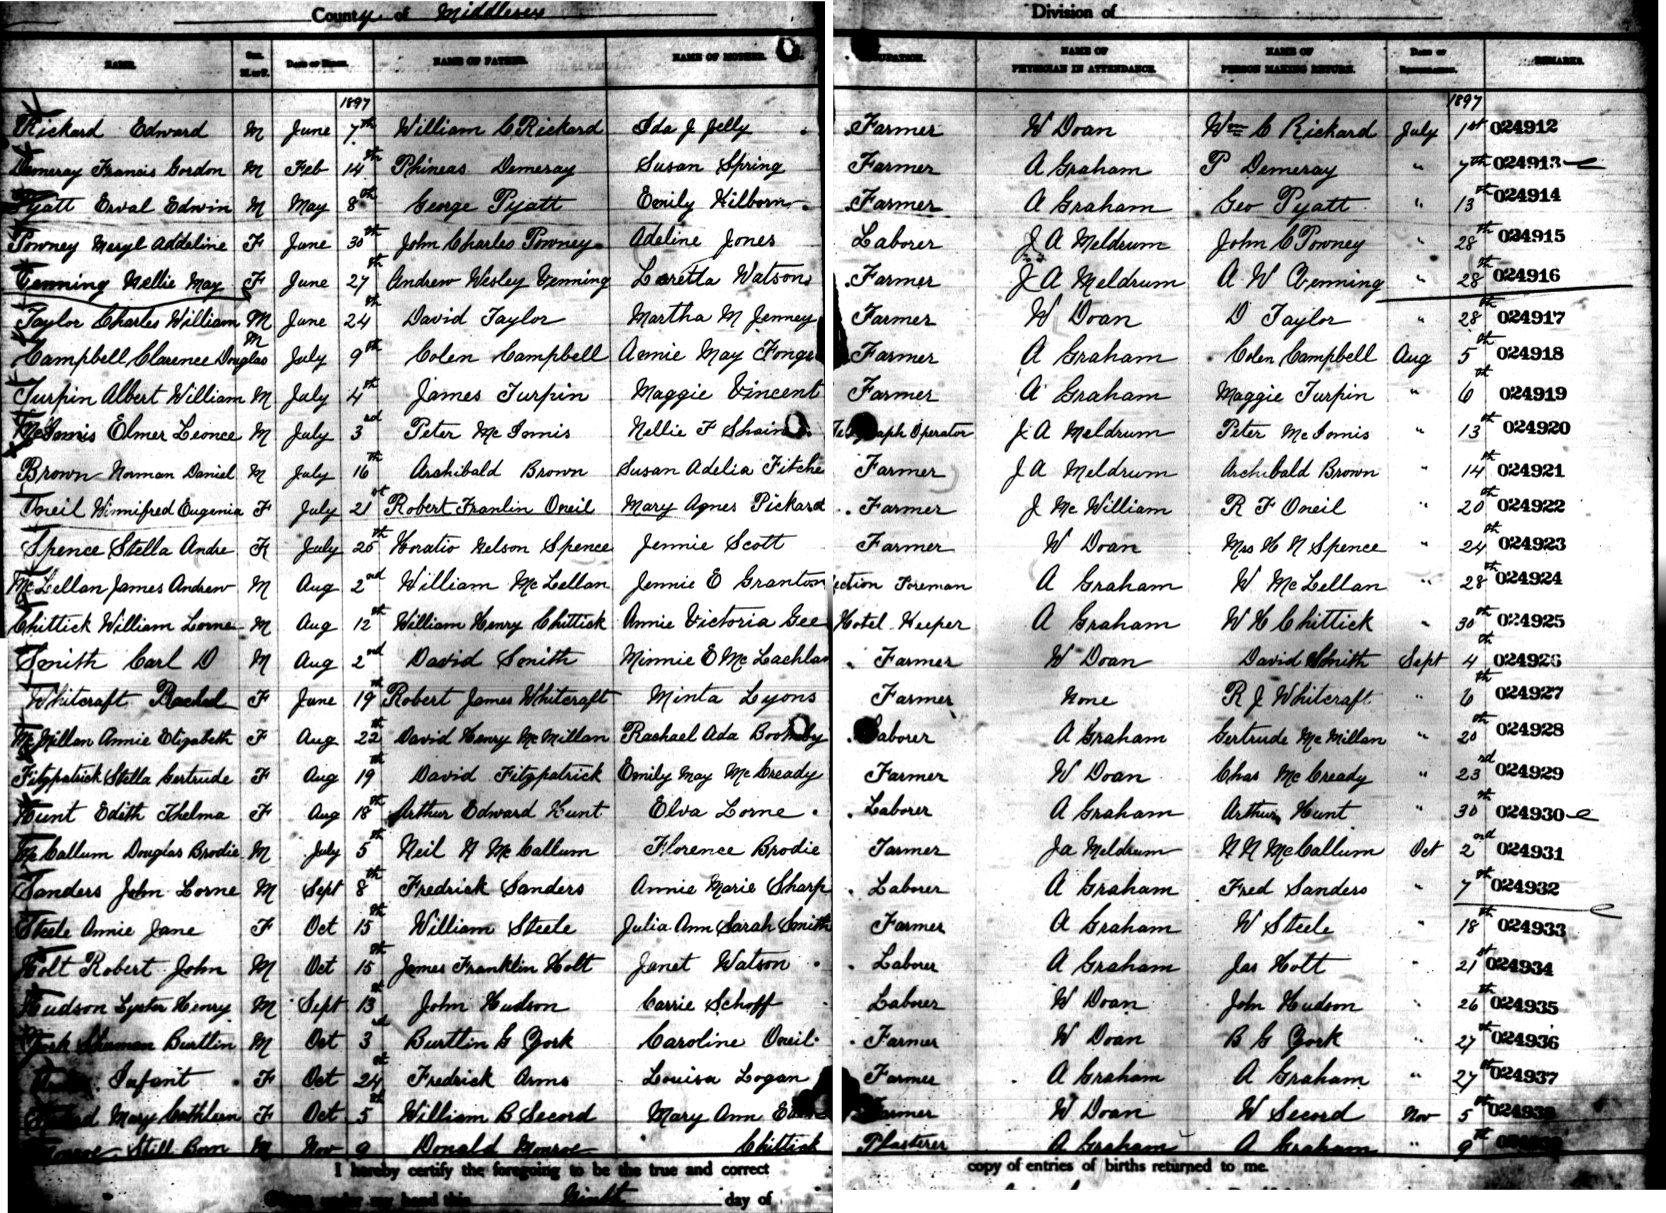 County of Middlesex Division of
NAME. Sex. M. or F. DATE OF BIRTH. NAME OF FATHER. NAME OF MOTHER. OCCUPATION. NAME OF PHYSICIAN IN ATTENDANCE. NAME OF PERSON MAKING RETURN. DATE OF REGISTRATION. REMARKS.
1897 1897
Rickard Edward M June 7th William C Rickard Ida J Jelly Farmer W Doan Wm C Rickard July 1st 024912
Demeray Francis Gordon M Feb 14th Phineas Demeray Susan Spring Farmer A Graham P Demeray " 7th 024913
Pyatt Erval Edwin M May 8th George Pyatt Emily Kilborn Farmer A Graham Geo Pyatt " 13th 024914
Powney Meryl Addeline F June 30th John Charles Powney Adeline Jones Laborer J A Meldrum John C Powney " 28th 024915
Venning Nellie May F June 27th Andrew Wesley Venning Loretta Watson Farmer J A Meldrum A W Venning " 28th 024916
Taylor Charles William M June 24th David Taylor Martha M Jenney Farmer W Doan D Taylor " 28th 024917
Campbell Clarence Douglas M July 9th Colen Campbell Annie May Fonger Farmer A Graham Colen Campbell Aug 5th 024918
Turpin Albert William M July 4th James Turpin Maggie Vincent Farmer A Graham Maggie Turpin " 6th 024919
McInnis Elmer Leonce M July 3rd Peter McInnis Nellie F Telegraph Operator J A Meldrum Peter McInnis " 13th 024920
Brown Norman Daniel M July 16th Archibald Brown Susan Adelia Fitche Farmer J A Meldrum Archibald Brown " 14th 024921
Oneil Winnifred Eugenia F July 21st Robert Franlin Oneil Mary Agnes Pickard Farmer J McWilliam R F Oneil " 20th 024922
Spence Stella Andre F July 25th Horatio Nelson Spence Jennie Scott Farmer W Doan Mrs H N Spence " 24th 024923
McLellan James Andrew M Aug 2nd William McLellan Jennie E Granton ection Foreman A Graham W McLellan " 28th 024924
Chittick William Lorne M Aug 12th William Henry Chittick Annie Victoria Gee Hotel Keeper A Graham W H Chittick " 30th 024925
Smith Carl D M Aug 2nd David Smith Minnie E McLachlan Farmer W Doan David Smith Sept 4th 024926
Whitcraft Rachel F June 19th Robert James Whitcraft Minta Lyons Farmer None R J Whitcraft " 6th 024927
McMillan Annie Elizabeth F Aug 22nd David Henry McMillan Rachael Ada Laborer A Graham Gertrude McMillan " 20th 024928
Fitzpatrick Stella Gertrude F Aug 19th David Fitzpatrick Emily May McCready Farmer W Doan Chas McCready " 23rd 024929
Hunt Edith Thelma F Aug 18th Arthur Edward Hunt Elva Lorne Laborer A Graham Arthur Hunt " 30th 024930
McCallum Douglas Brodie M July 5th Neil N McCallum Florence Brodie Farmer Ja Meldrum N N McCallum Oct 2nd 024931
Sanders John Lorne M Sept 8th Fredrick Sanders Annie Marie Sharp Laborer A Graham Fred Sanders " 7th 024932
Steele Annie Jane F Oct 15th William Steele Julia Ann Sarah Smith Farmer A Graham W Steele " 18th 024933
Holt Robert John M Oct 15th James Franklin Holt Janet Watson Laborer A Graham Jas Holt " 21st 024934
Hudson Lyster Henry M Sept 13th John Hudson Carrie Schoff Laborer W Doan John Hudson " 26th 024935
York Burttin M Oct 3rd Burttin G York Caroline Oneil Farmer W Doan B G York " 27th 024936
Infant F Oct 24th Fredrick Arms Louisa Logan Farmer A Graham A Graham " 27th 024937
Mary Cathleen F Oct 5th William B Secord Mary Ann Farmer W Doan W Secord Nov 5th 024938
Monroe Still Born M Nov 9 Donald Monroe Chittick Plasterer A Graham A Graham " 9th
I hereby certify the foregoing to be the true and correct copy of entries of births returned to me.
Given under my hand this Ninth day of